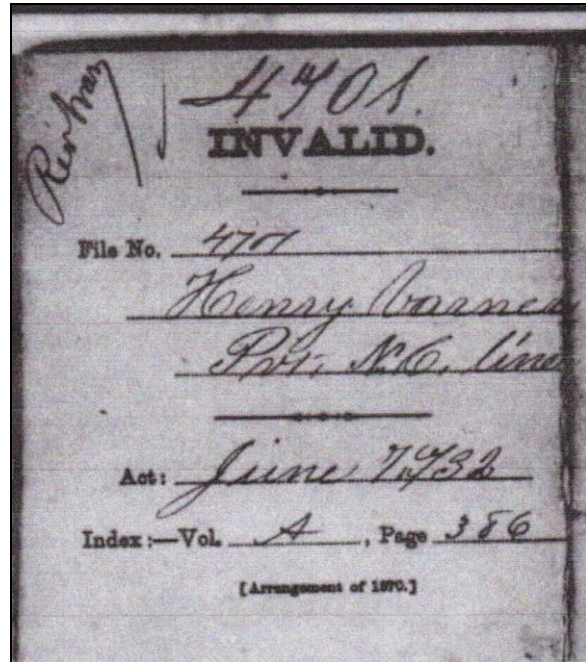 Rev War
4701.
INVALID.
File No. 4701
Henry Varner
Pvt. N.C. line
Act: June 7, 32
Index:—Vol. A, Page 386
[Arrangement of 1870.]